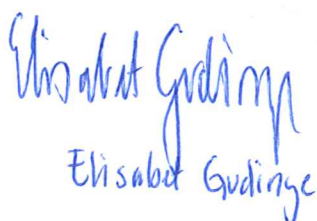 Elisabet Gudinge
Elisabet Gudinge